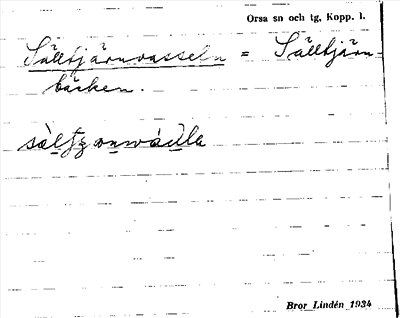 Orsa sn och tg, Kopp. l.
Sälltjärnvasseln = Sälltjärn-
bäcken.
Bror Lindén 1934